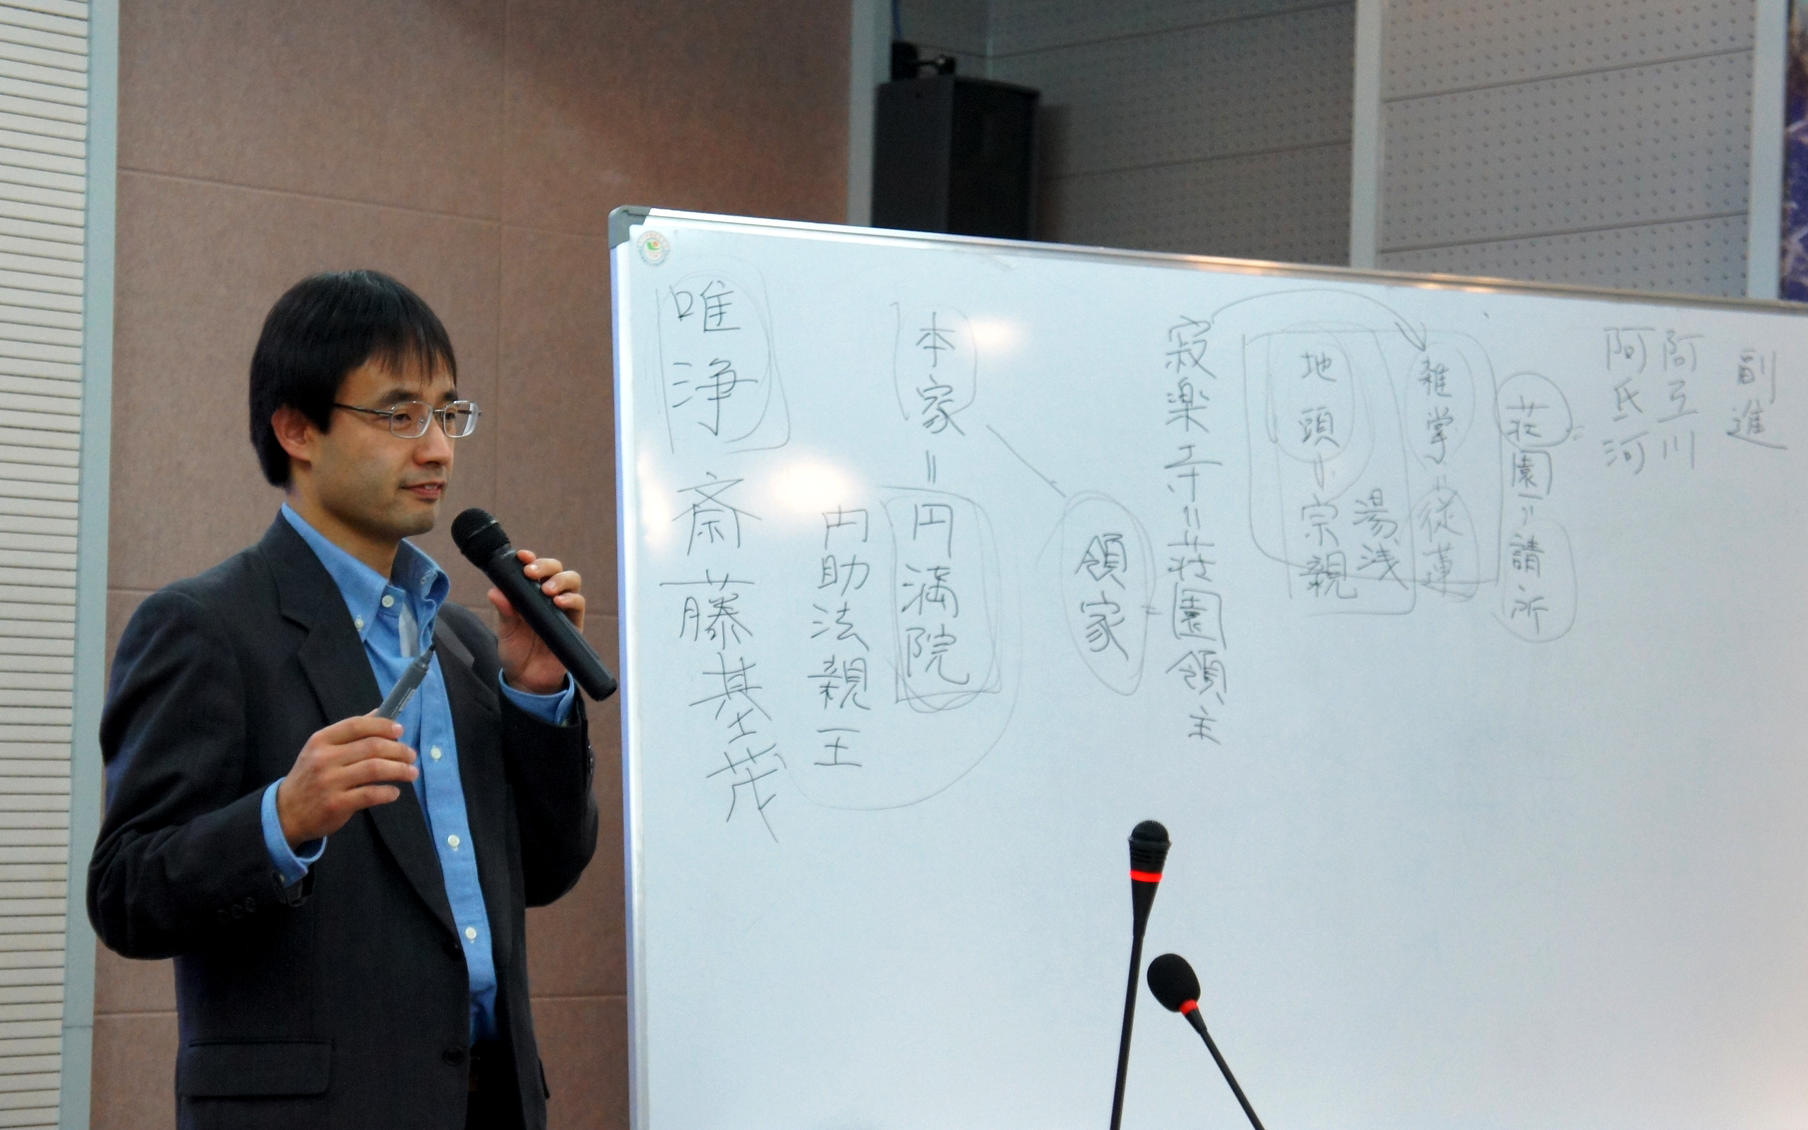 副進
阿弖川
阿氐河
荘園=請所
雑掌=従蓮
湯浅
地頭=宗親
寂楽寺=荘園領主
領家
本家=円満院
円助法親王
唯浄
斎藤基茂